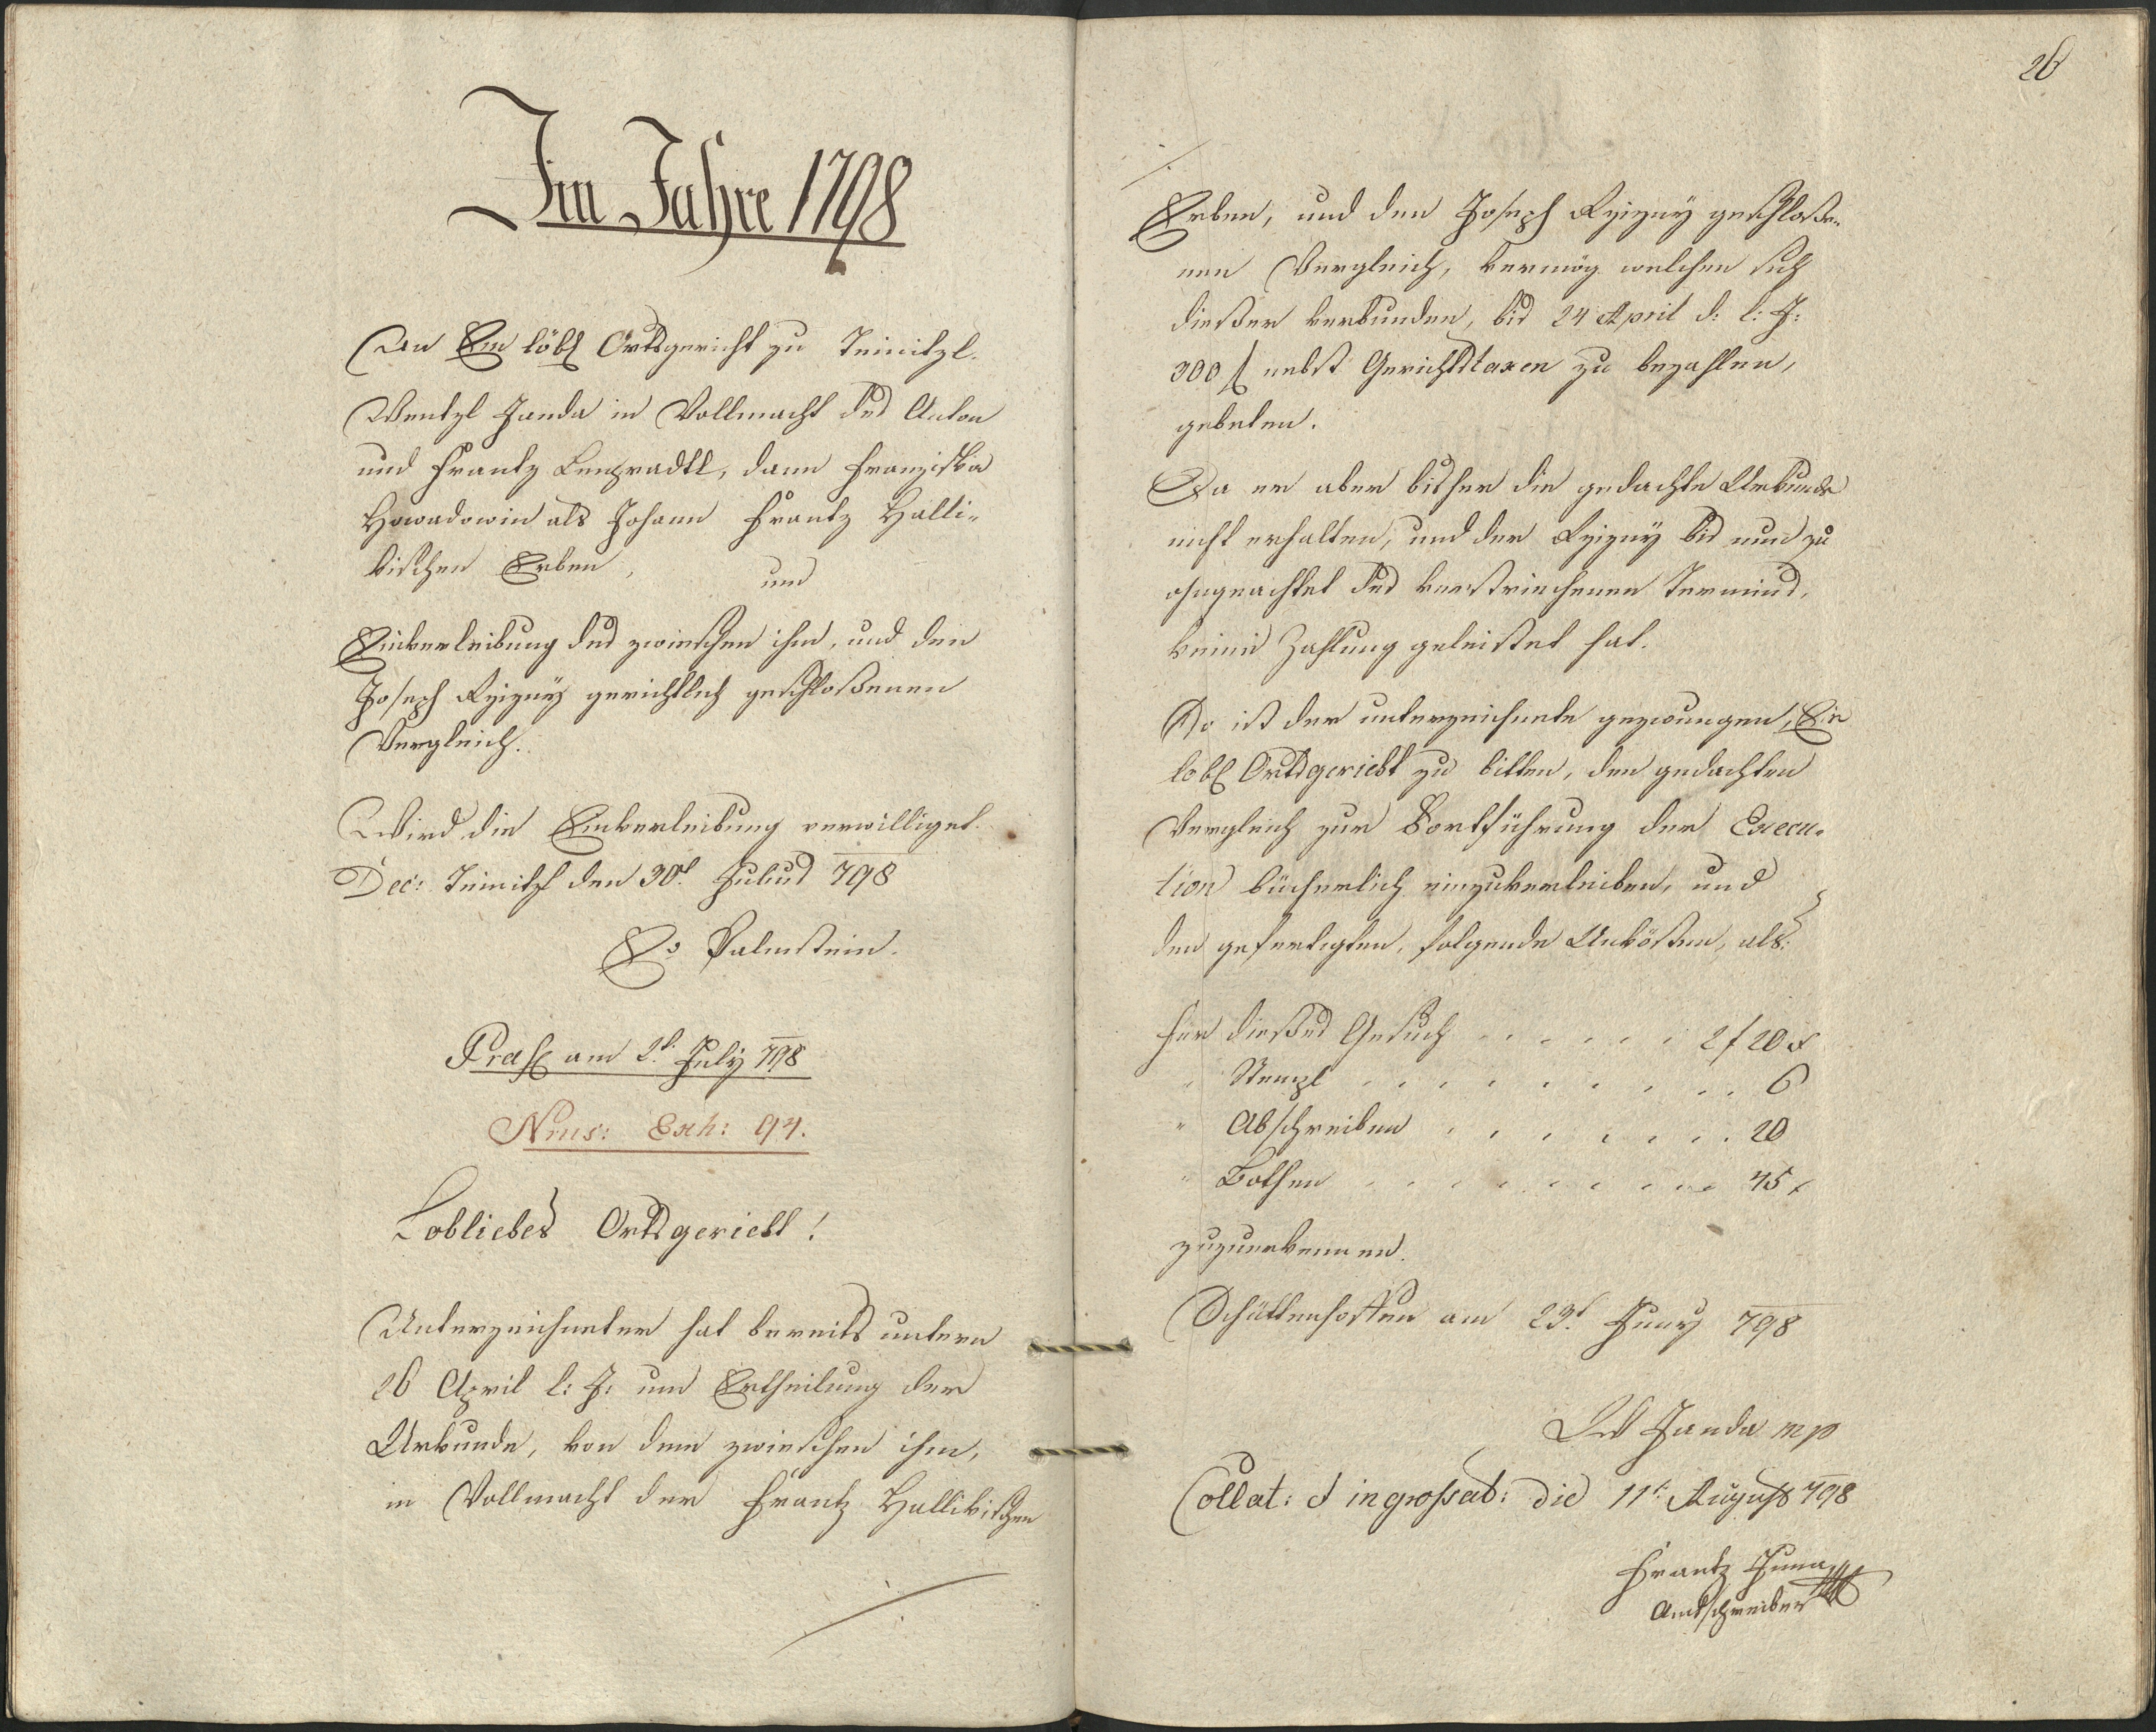 Im Jahre 1798
An Ein löbl Ortsgericht zu Teinitzl.
Wentzl Janda in Vollmacht des Anton
und Frantz Lengradtl, dann Franziska
Howadowin als Johann Frantz Halli-
kischen Erben, um
Einverleibung des zwieschen ihm, und den
Joseph Rzizny gerichtlich geschloßenen
Vergleich.
Wird die Einverleibung verwilliget.
Dec: Teinitzl den 30t Julius 798
Palmstein.
Præs am 2t July 798
Nrus: Exh: 94.
Lobliches Ortsgericht!
Unterzeichneter hat bereits untern
26 April l: J: um Ertheilung der
Urkunde, von dem zwieschen ihm,
in Vollmacht der Frantz Hallikischen
26
Erben, und den Joseph Rzizny geschloße-
nen Vergleich, vermög welchen sich
dießer verbunden, bis 24 April d: l: J:
300 f nebst Gerichtstaxen zu bezahlen,
gebeten.
Da er aber bisher die gedachte Urkunde
nicht erhalten, und der Rzizny bis nun zu
ohngeachtet des verstriechenen Termins,
keine Zahlung geleistet hat.
So ist der unterzeichnete gezwungen, Ein
lobl Ortsgericht zu bitten, den gedachten
Vergleich zur Fortführung der Execu-
tion bücherlich einzuverleiben, und
den gefertigten, folgende Unkösten, als:
für dießes Gesuch . . . . . . 2 f 20 x
" Stempl . . . . . . . . 6
" Abschreiben . . . . . . . 20
" Bothen . . . . . . . . 45 x
zuzuerkennen.
Schüttenhoffen am 23t Juny 798
W Janda mp
Collat: et ingrossat: die 11t August 798
Frantz
Amtschreiber